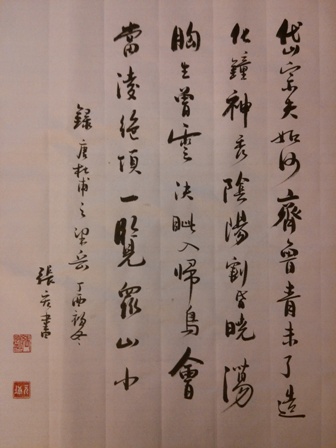 岱宗夫如何齊魯青未了造
化鐘神秀陰陽割昏曉蕩
胸生曾雲決眦入歸鳥會
當凌絕頂一覽眾山小
錄唐杜甫之望岳丁酉初冬
張書